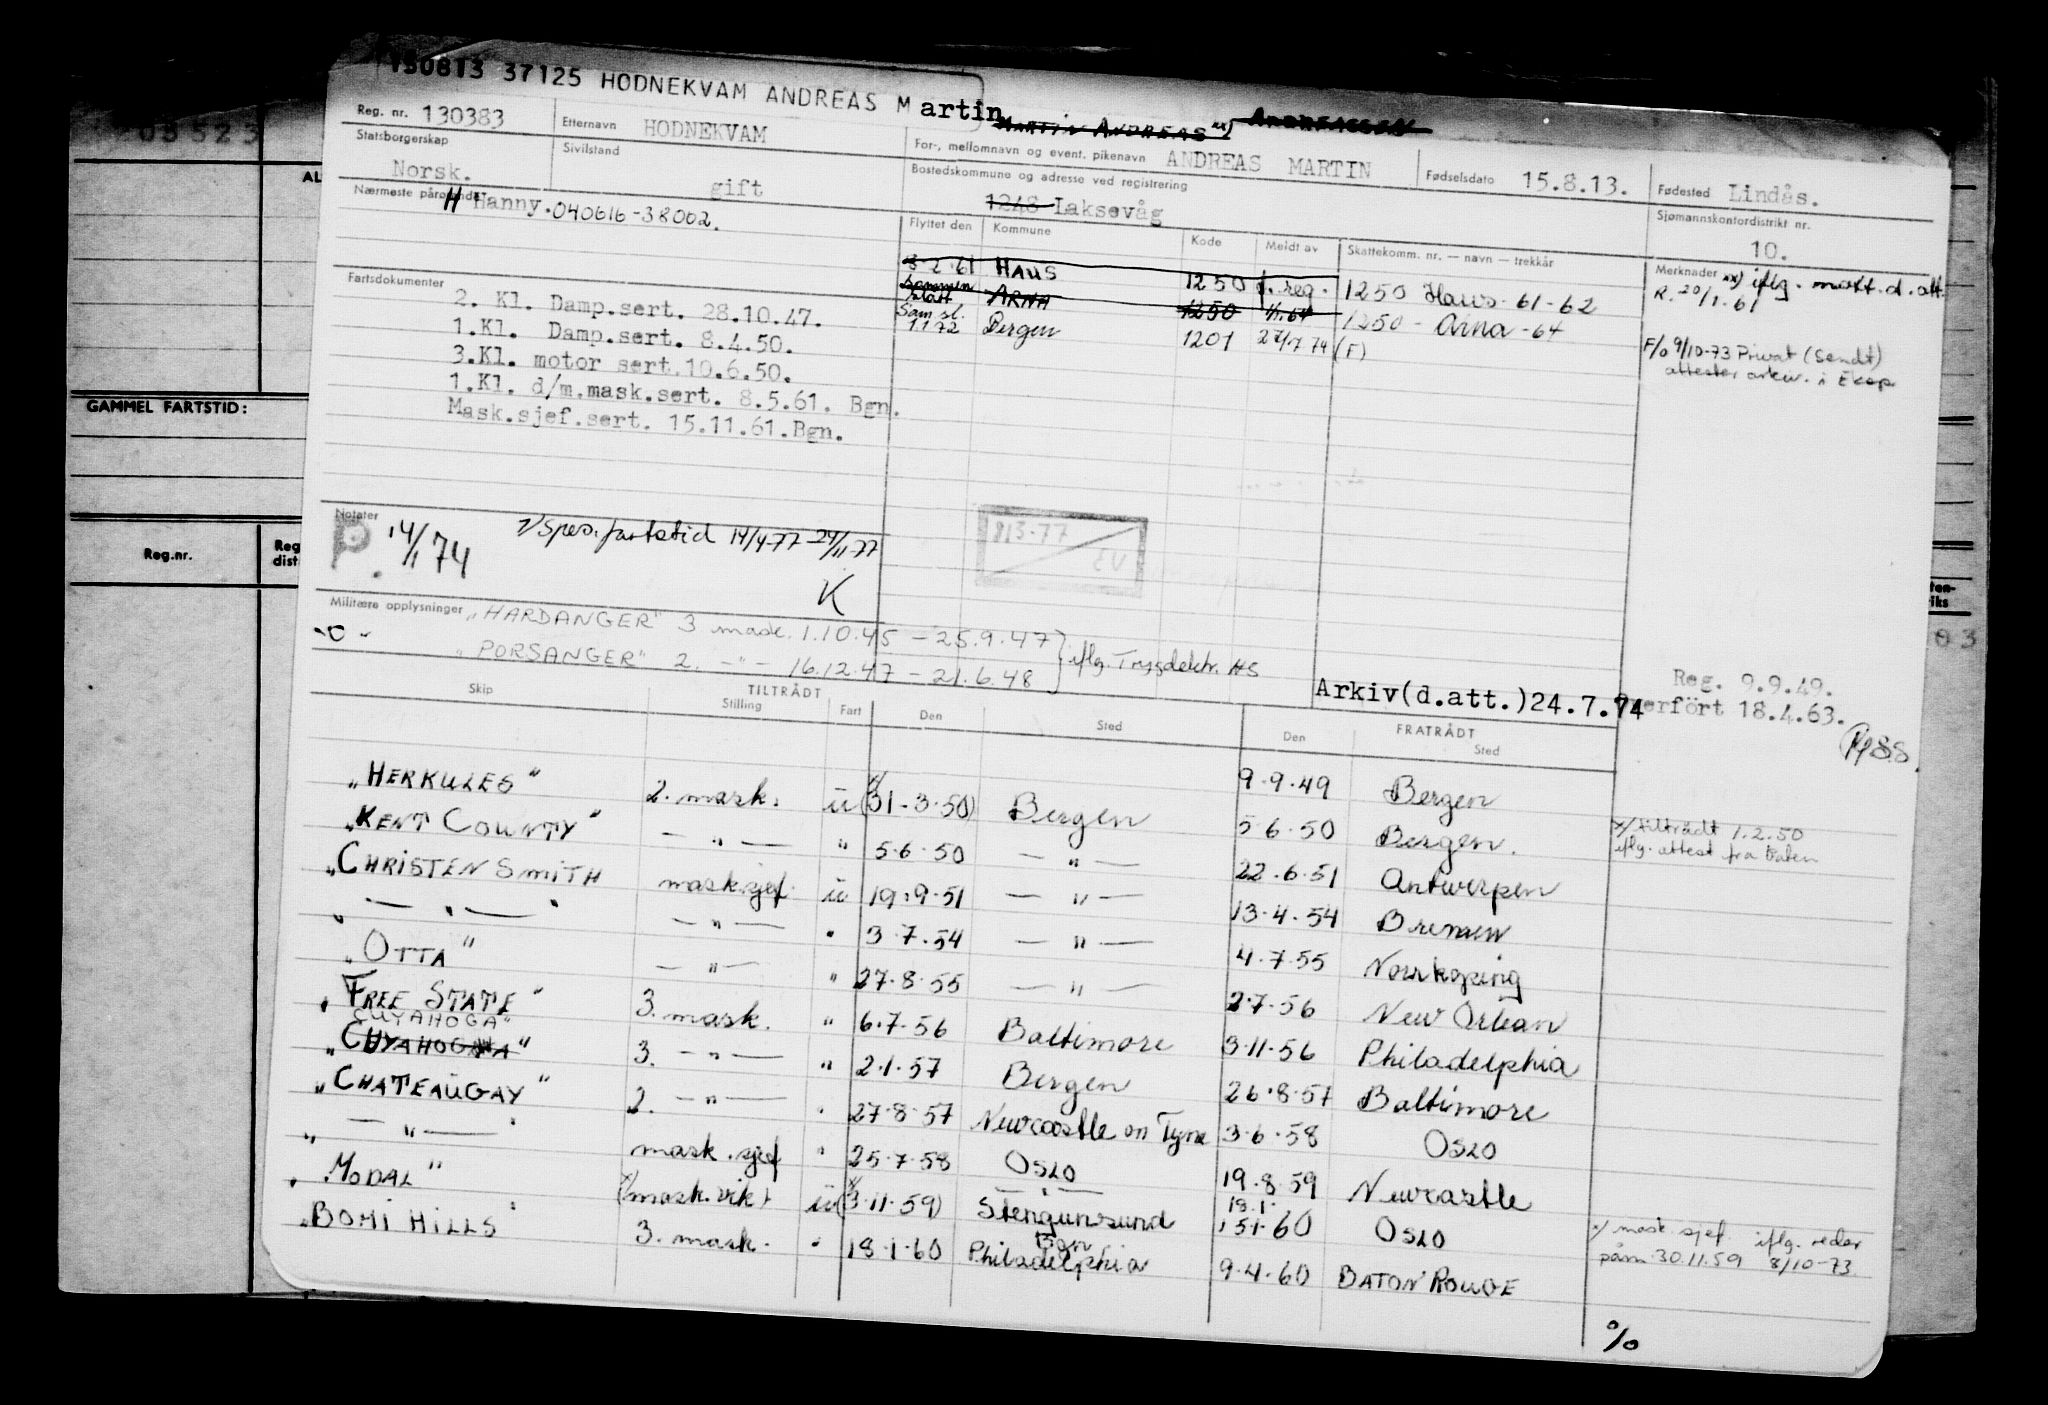 130813 37125 HODNEKVAM ANDREAS Martin
MARTIN ANDREAS xx) ANDREASSEN
Reg. nr. 130383 Etternavn HODNEKVAM For-, mellomnavn og event. pikenavn ANDREAS MARTIN Fødselsdato 15.8.13. Fødested Lindås.
Statsborgerskap Norsk. Sivilstand gift Bostedskommune og adresse ved registrering 1248 Laksevåg Sjømannskontordistrikt nr. 10.
Nærmeste pårørende H Hanny. 040616-38002.
Flyttet den Kommune Kode Meldt av Skattekomm. nr. — navn — trekkår Merknader xx) iflg. mott. d. att.
8-2-61 HAUS 1250 f. reg. 1250 Haus - 61-62 R. 20/1-61
Sammen slått ARNA 1250 1/1.64 1250 - Arna - 64
Sam sl. 1.1.72 Bergen 1201 27/7 74 (F)
F/o 9/10-73 Privat (Sendt)
attester arkiv. i Eksp
Fartsdokumenter
2. Kl. Damp.sert. 28.10.47.
1.Kl. Damp.sert. 8.4.50.
3.Kl. motor sert.10.6.50.
1.Kl. d/m.mask.sert. 8.5.61. Bgn.
Mask.sjef.sert. 15.11.61.Bgn.
Notater
P. 14/1 74 Spes. fartstid 14/4-77 - 24/11-77
K
813-77
EU
Militære opplysninger "HARDANGER" 3 mask. 1.10.45 - 25.9.47
-o- "PORSANGER" 2. -"- 16.12.47 - 21.6.48 } iflg. Trygdektr. HS
Arkiv(d.att.)24.7.74
Reg. 9.9.49.
erfört 18.4.63.
Skip TILTRÅDT Stilling Fart Den Sted FRATRÅDT Den Sted
"HERKULES" 2. mask. u (x/ 31-3-50) Bergen 9.9.49 Bergen
"KENT COUNTY" -"- " 5.6.50 -"- 5.6.50 Bergen. x/ tiltrådt 1.2.50
iflg. attest fra båten
"CHRISTEN SMITH mask.sjef. u 19.9.51 -"- 22.6.51 Antwerpen
" -"- " -"- " 3.7.54 -"- 13.4.54 Bremen
"OTTA" -"- " 27.8.55 -"- 4.7.55 Norrkøping
"FREE STATE" 3. mask. " 6.7.56 Baltimore 2.7.56 New Orlean
CUYAHOGA"
"CUYAHOGA" 3. -"- " 2.1.57 Bergen 3.11.56 Philadelphia
"CHATEAUGAY" 2. -"- " 27.8.57 Newcastle on Tyne 26.8.57 Baltimore
" -"- " mask.sjef " 25.7.58 Oslo 3.6.58 Oslo
"MODAL" x/(mask.vik) u (x/ 3.11.59) Stenungsund 19.8.59 Newcastle
"BOMI HILLS" 3. mask. " 18.1.60 Philadelphia 18.1. 15.1.60 Oslo x/ mask sjef. iflg. reder
påm. 30.11.59 8/10-73.
9.4.60 BATON ROUGE
%
08523
GAMMEL FARTSTID:
Reg.nr.